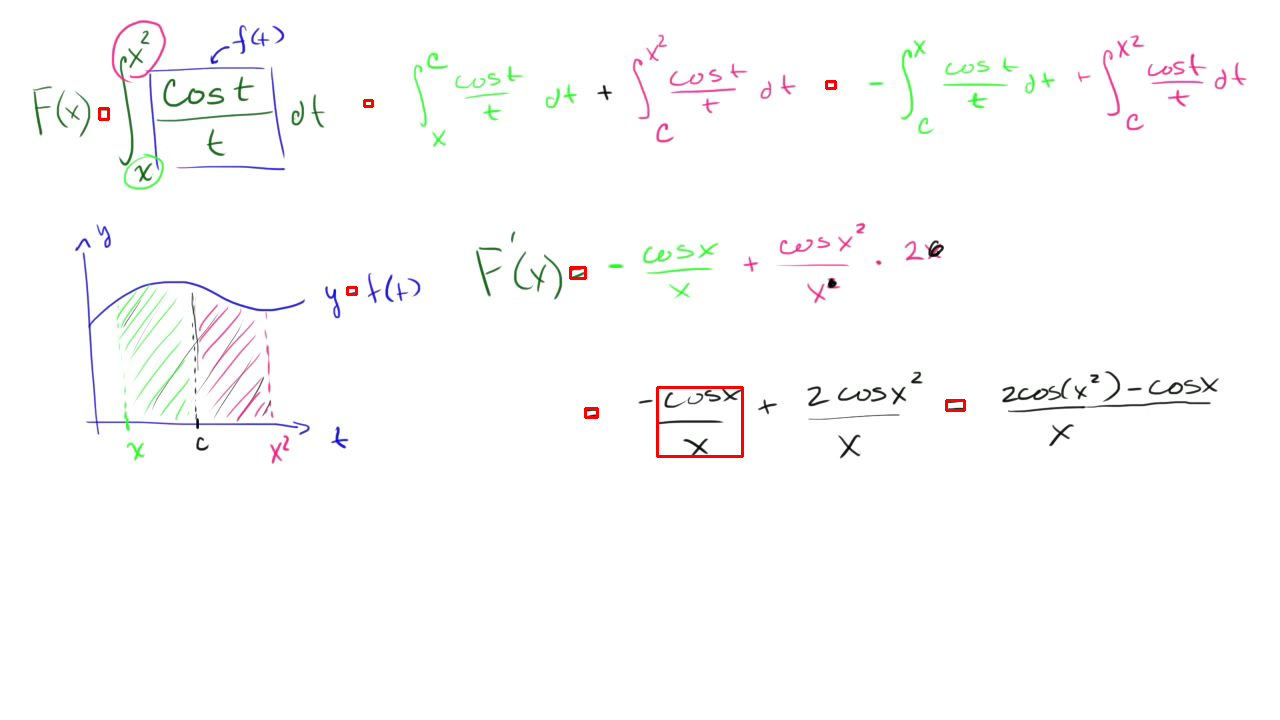 f(t)
F(x) = ∫_x^{x²} cos t / t dt = ∫_x^c cos t / t dt + ∫_c^{x²} cos t / t dt = - ∫_c^x cos t / t dt + ∫_c^{x²} cos t / t dt
y
F'(x) = - cos x / x + cos x² / x · 2
y = f(t)
= - cos x / x + 2 cos x² / x = 2cos(x²) - cos x / x
x c x² t